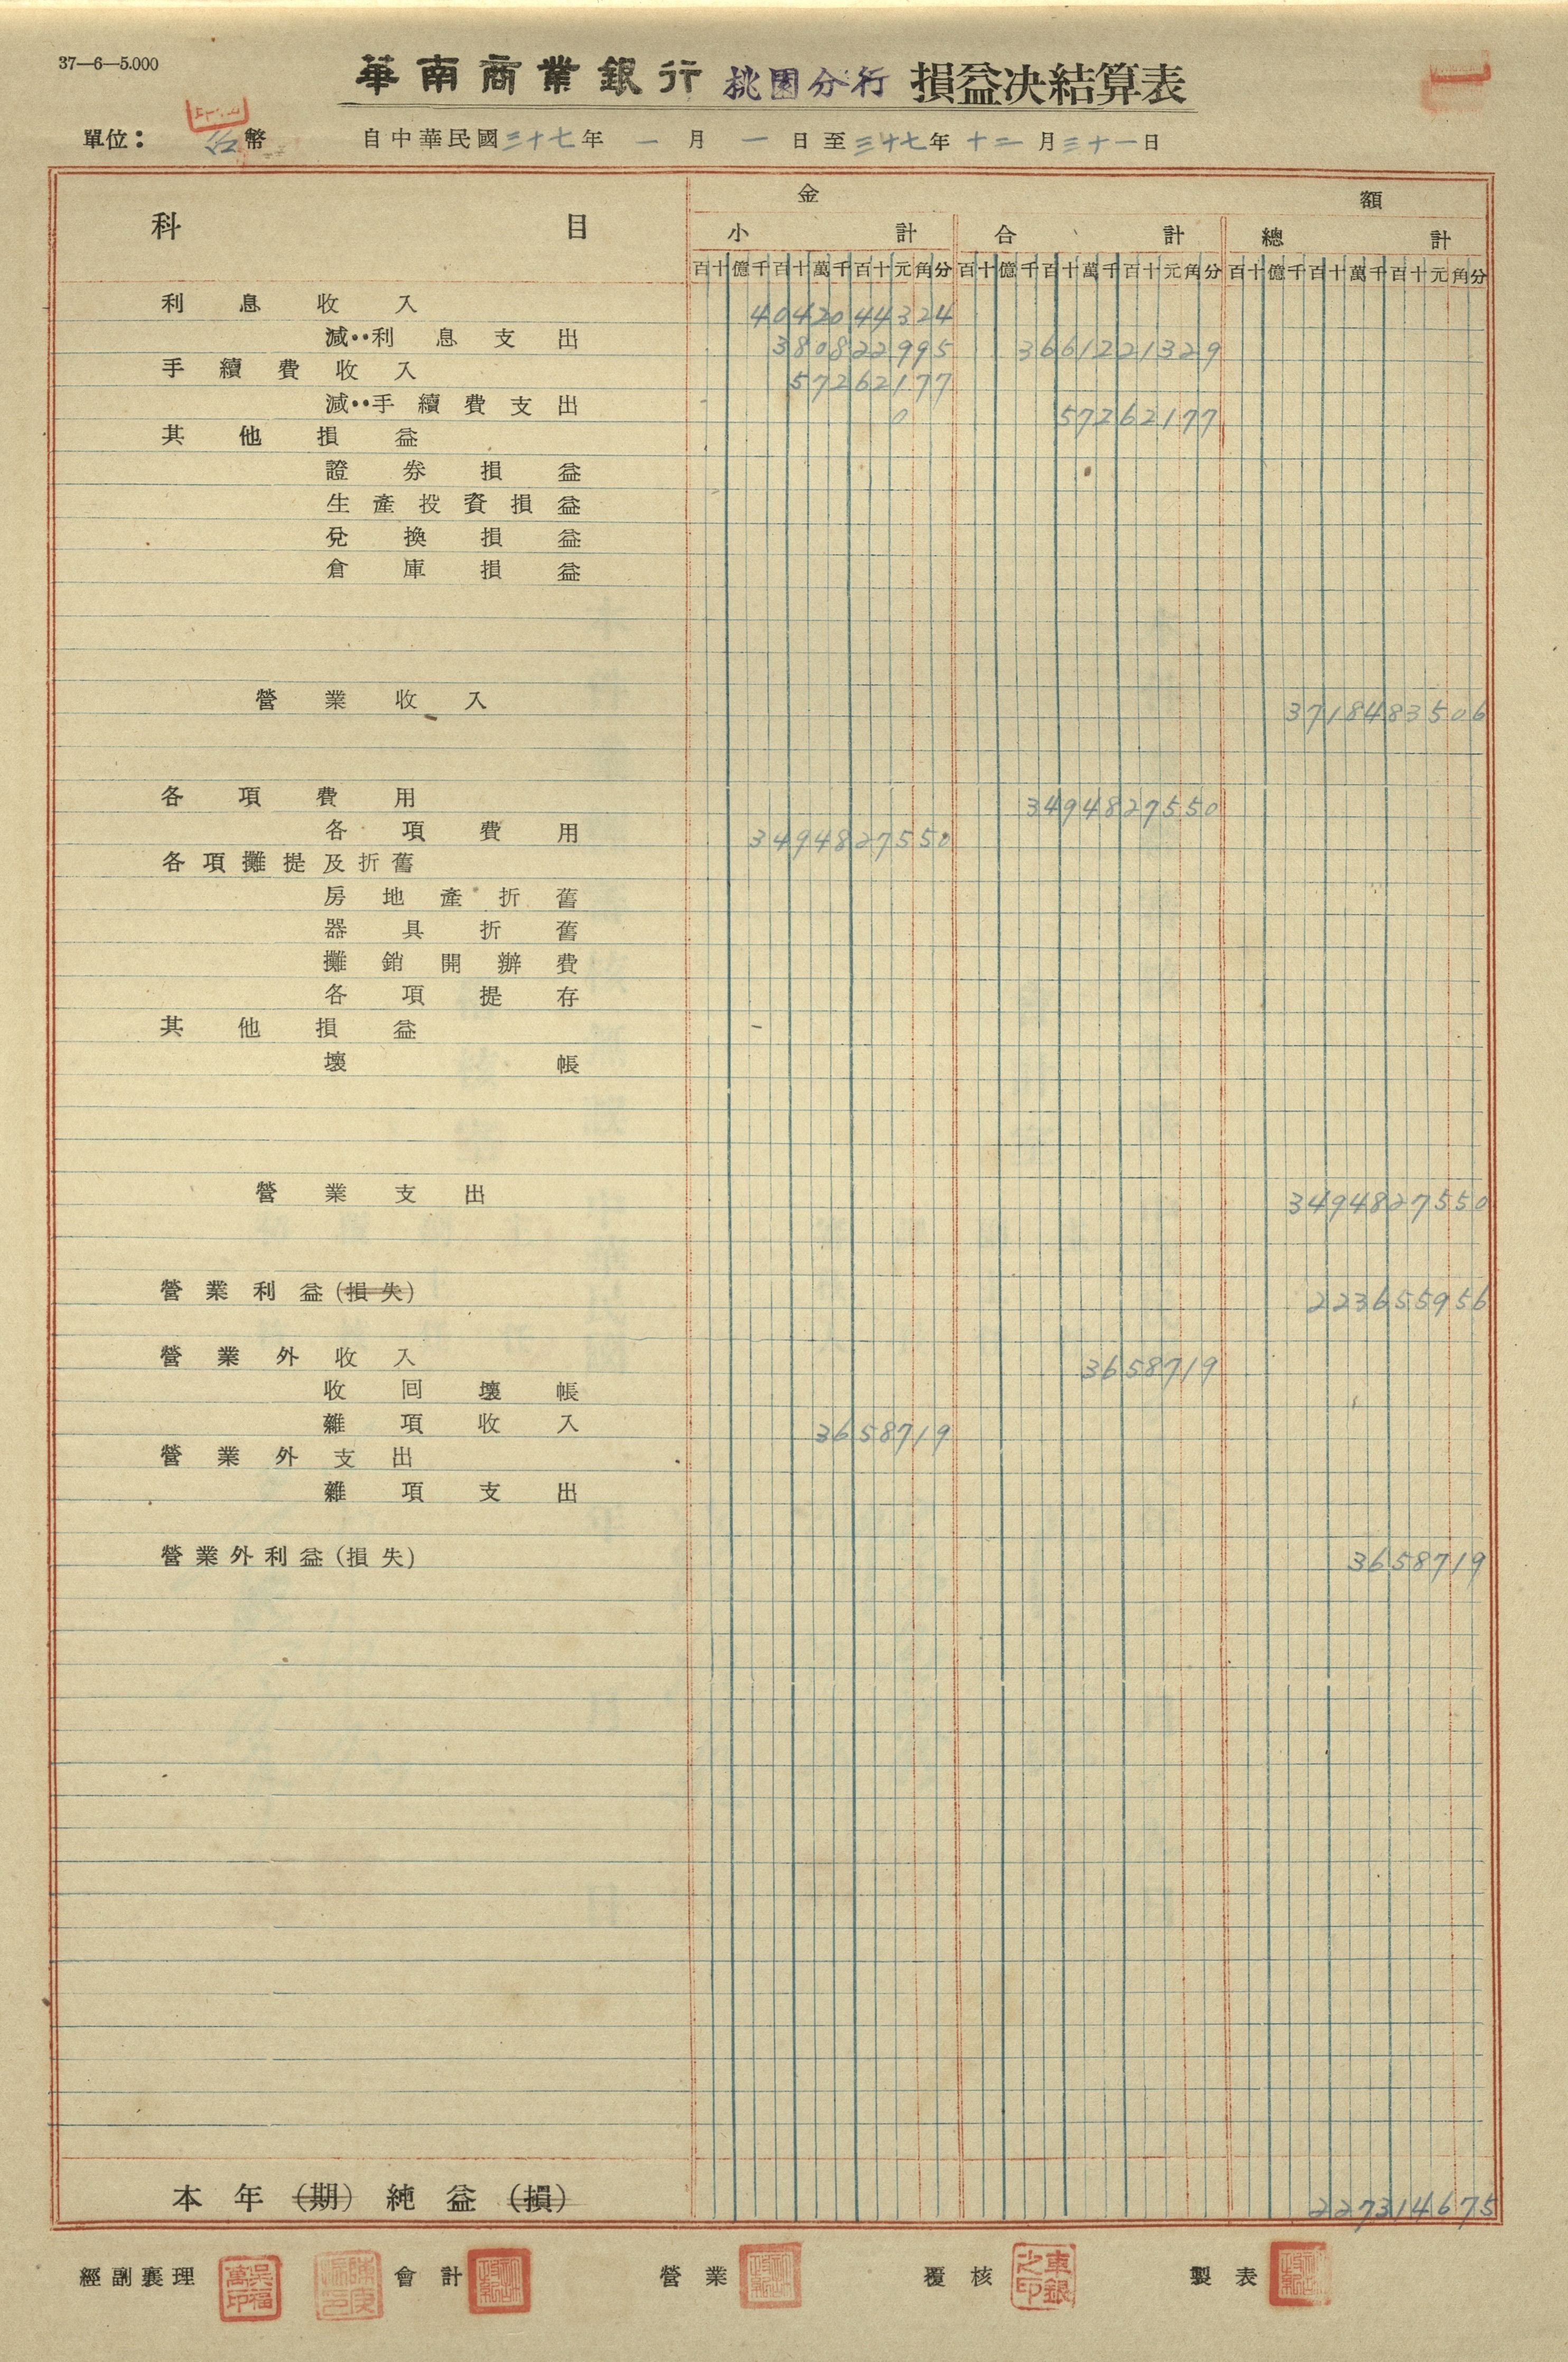 37—6—5.000
華南商業銀行 桃園分行 損益決結算表
單位：台幣 自中華民國三十七年一月一日至三十七年十二月三十一日
科目 金額
小計 合計 總計
百十億千百十萬千百十元角分 百十億千百十萬千百十元角分 百十億千百十萬千百十元角分
利息收入 4042044324
減‥利息支出 380822995 3661221329
手續費收入 57262177
減‥手續費支出 0 57262177
其他損益
證券損益
生產投資損益
兌換損益
倉庫損益
營業收入 3718483506
各項費用 3494827550
各項費用 3494827550
各項攤提及折舊
房地產折舊
器具折舊
攤銷開辦費
各項提存
其他損益
壞帳
營業支出 3494827550
營業利益(損失) 223655956
營業外收入 3658719
收回壞帳
雜項收入 3658719
營業外支出
雜項支出
營業外利益(損失) 3658719
本年(期)純益(損) 227314675
經副襄理 吳福萬印 會計 營業 覆核 製表